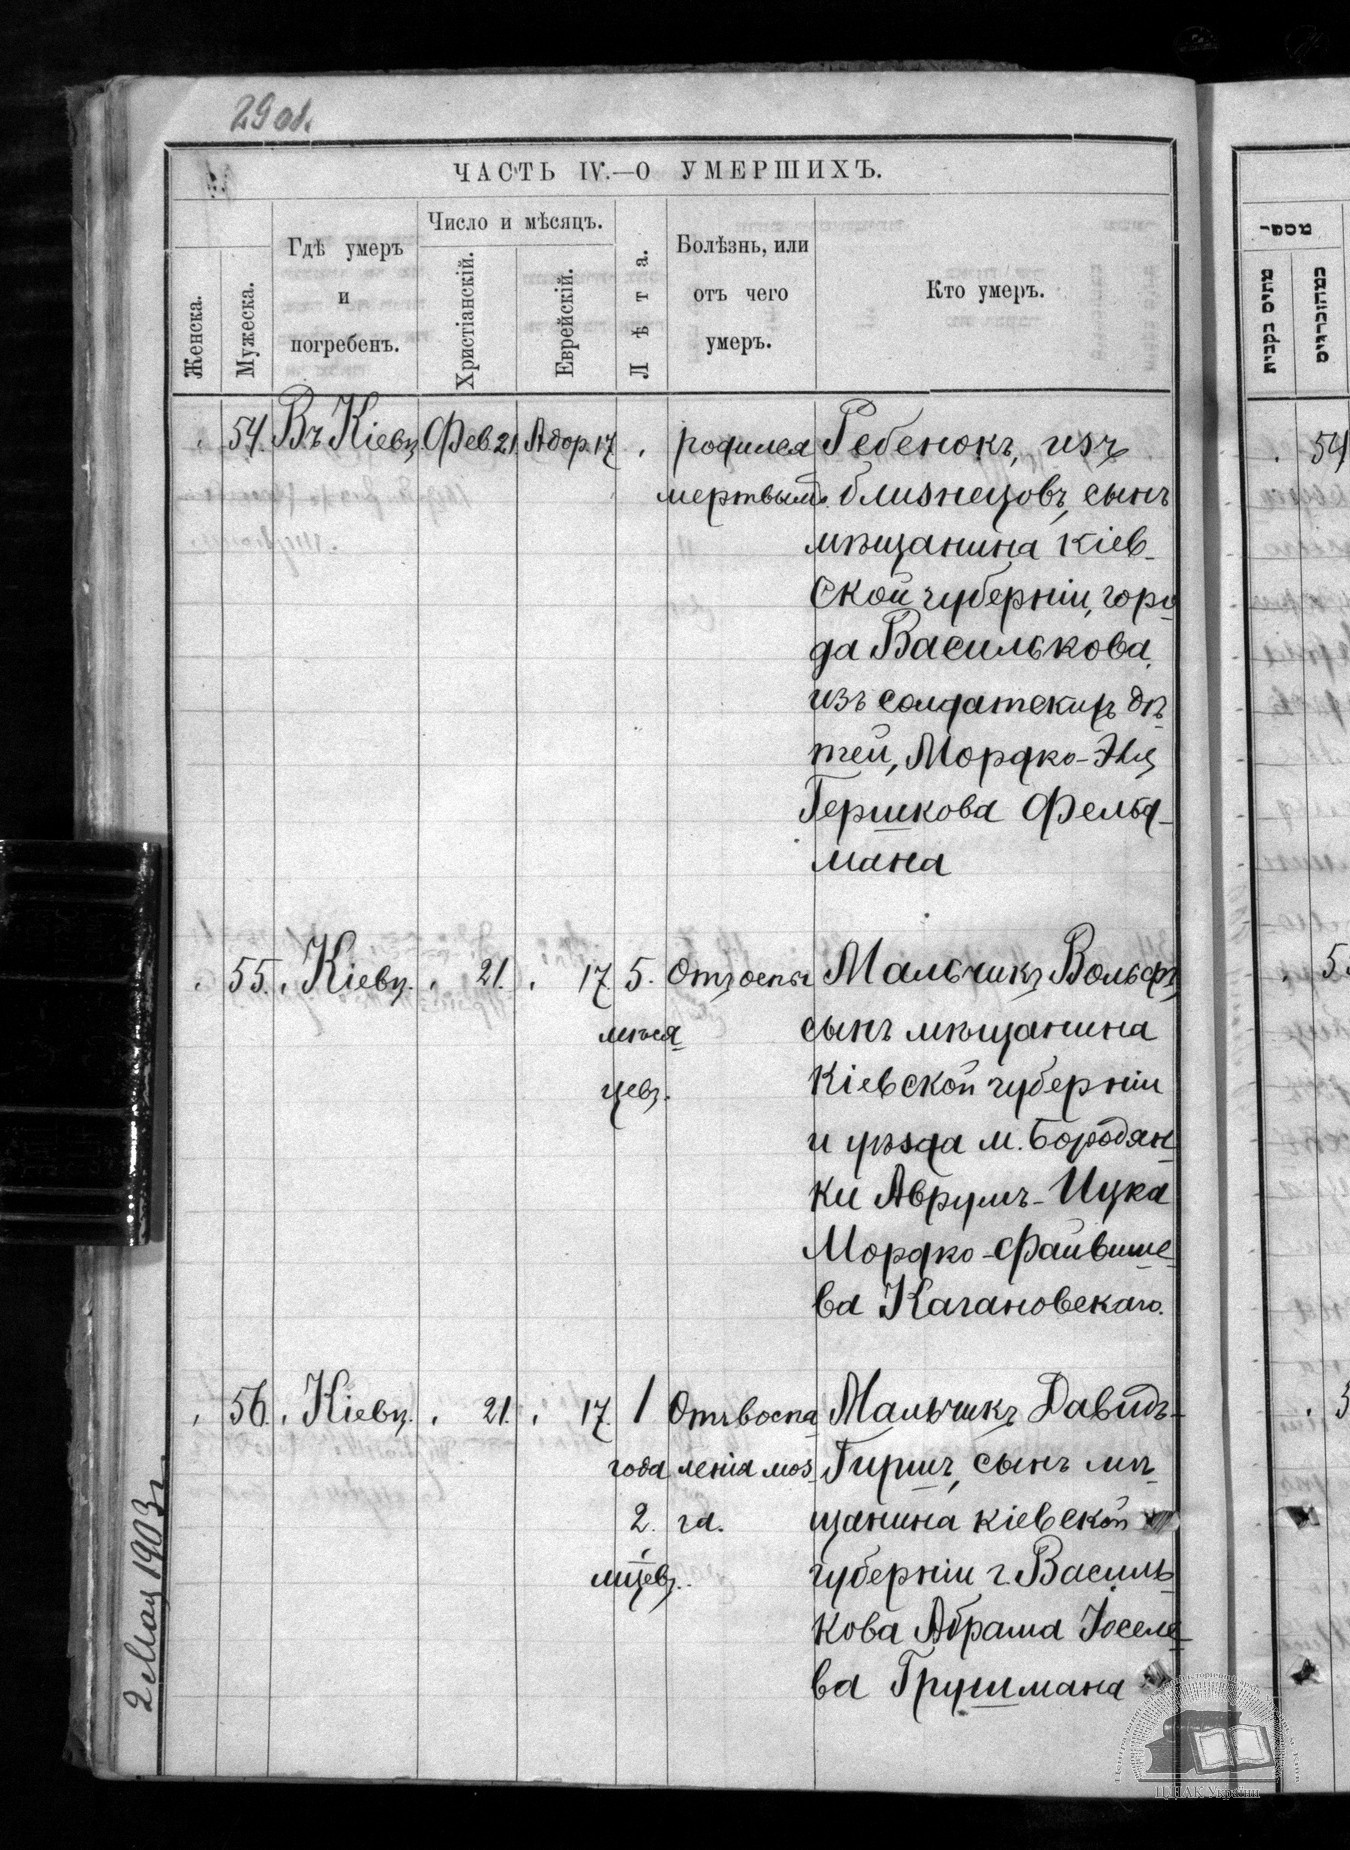 29 об.
ЧАСТЬ IV.—О УМЕРШИХЪ.
Женска.
Мужеска.
Гдѣ умеръ
и
погребенъ.
Число и мѣсяцъ.
Христіанскій.
Еврейскій.
Лѣта.
Болѣзнь, или
отъ чего
умеръ.
Кто умеръ.
מספר
54. Въ Кіевѣ. Фев. 21. Адор. 17 родился Ребенокъ, изъ
мертвымъ. близнецовъ, сынъ
мѣщанина Кіев-
ской губерніи, горо-
да Василькова,
изъ солдатскихъ дѣ-
тей, Мордко-Эля
Гершкова Фельд-
мана
55. Кіевѣ. 21. 17. 5. Отъ оспы Мальчикъ Вольфъ,
мѣся- сынъ мѣщанина
цевъ. Кіевской губерніи
и уѣзда м. Бородян-
ки Аврумъ-Ицка
Мордко-Файвише-
ва Кагановскаго.
56. Кіевѣ. 21. 17. 1 Отъ воспа- Мальчикъ Давидъ-
года ленія моз- Гиршъ, сынъ мѣ-
2. га. щанина Кіевской
мѣцевъ. губерніи г. Василь-
кова Абрама Іоселе-
ва Грушмана
2 Мая 1903 г.
54
ЦДІАК України